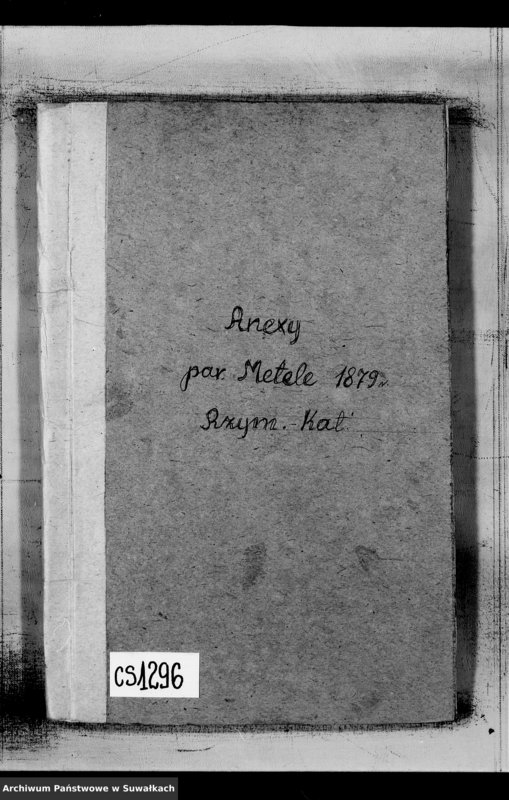 Anexy
par. Metele 1879r.
Rzym.-Kat.
CS1296
Archiwum Państwowe w Suwałkach